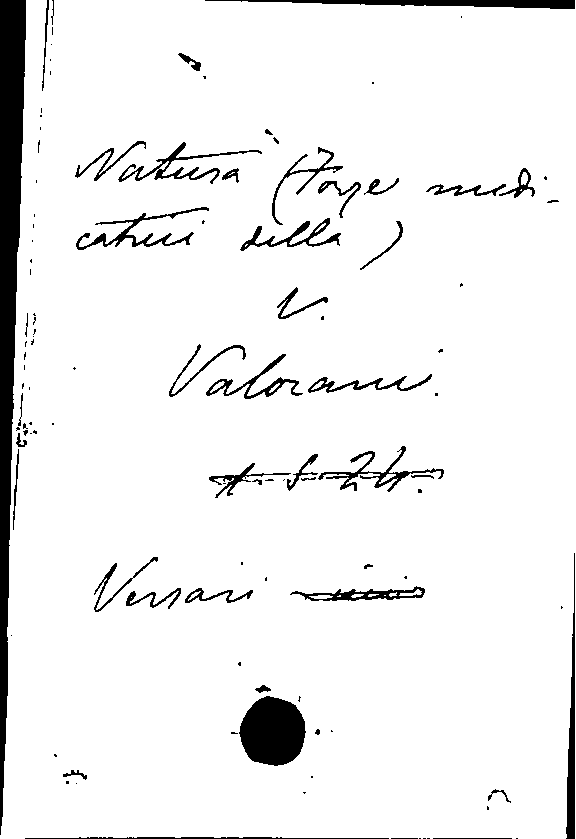 Natura (Forze medi-
catrici della)
V.
Valorani.
1. S. 24.
Versari